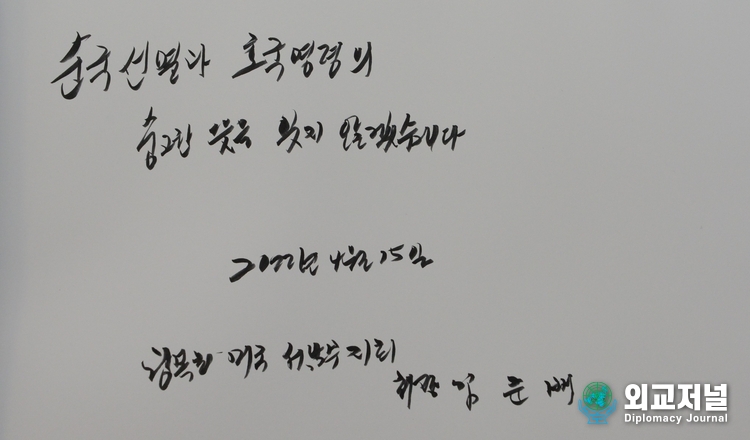 순국선열과 호국영령의
숭고한 뜻을 잊지 않겠습니다
2022년 4월 25일
광복회 미국 서남부지회
회장 임 준 배
외교저널
Diplomacy Journal